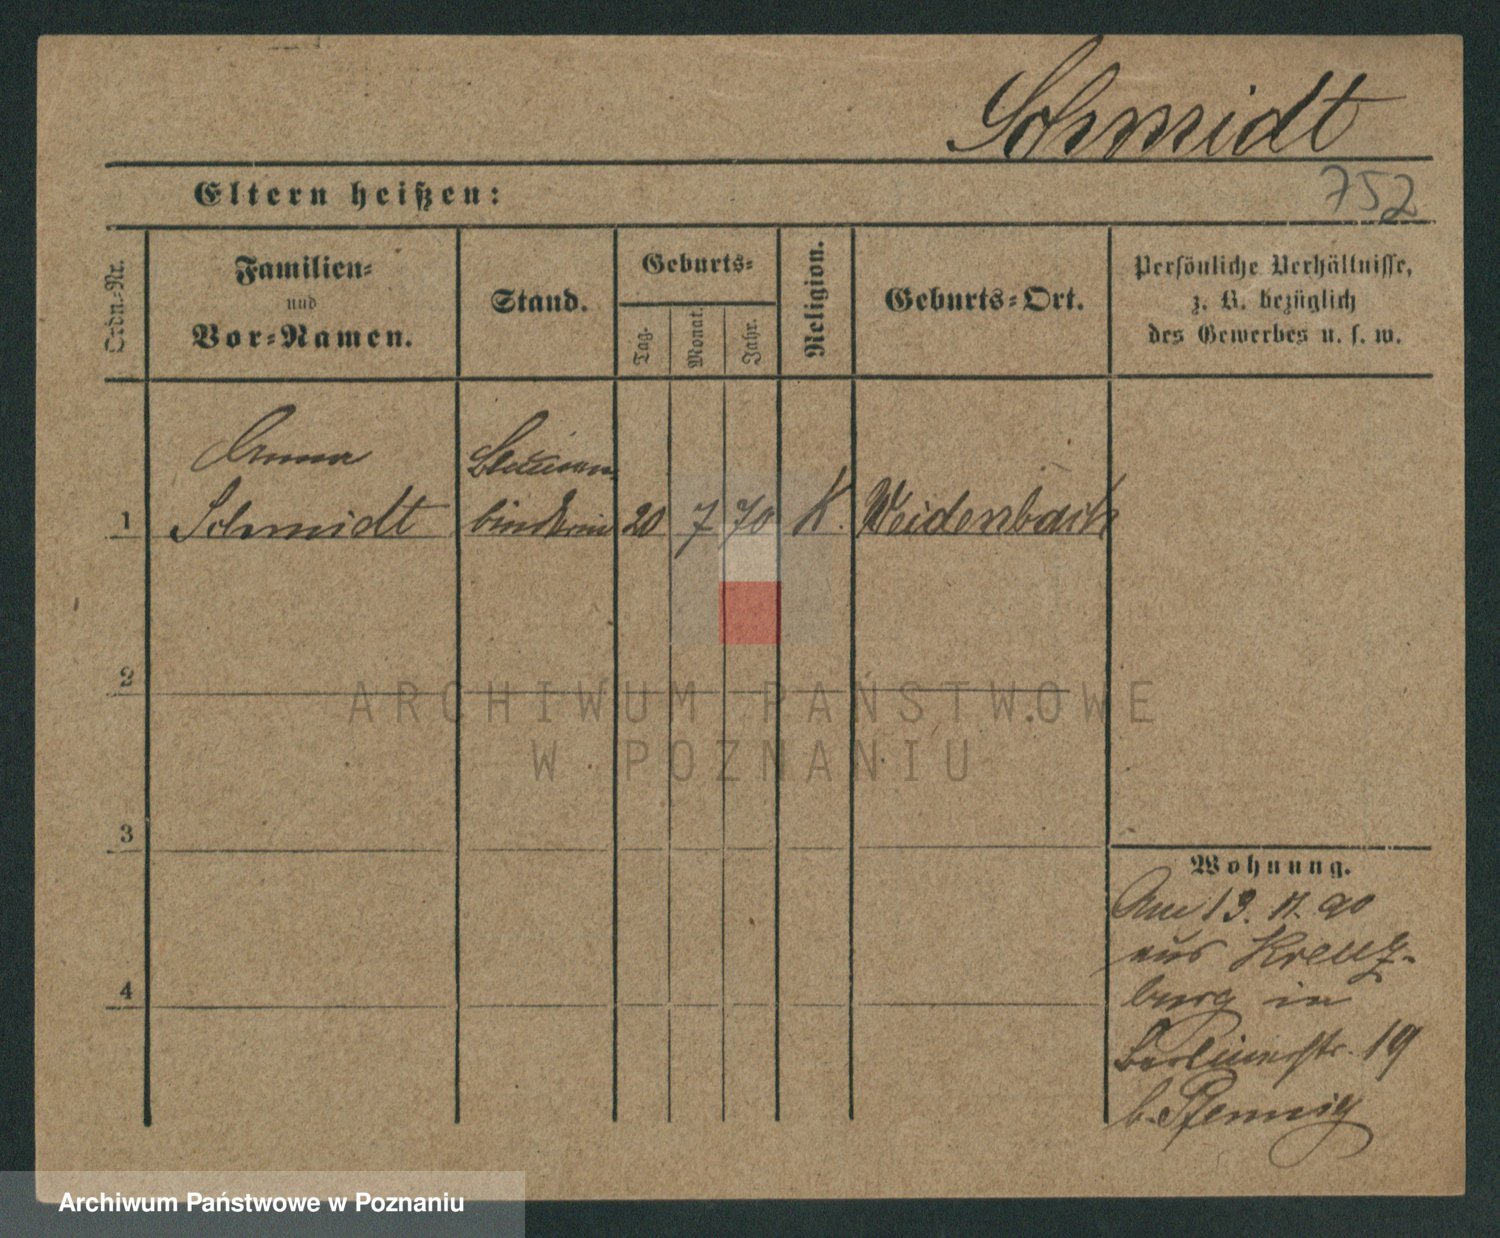 Schmidt
Eltern heißen:
752
Ordn.-Nr.
Familien-
und
Vor-Namen.
Stand.
Geburts-
Tag.
Monat.
Jahr.
Religion.
Geburts-Ort.
Persönliche Verhältnisse,
z. B. bezüglich
des Gewerbes u. s. w.
Anna
Blumen
1 Schmidt binderin 20 7 70 K. Weidenbach
2
ARCHIWUM PAŃSTWOWE
W POZNANIU
3
Wohnung.
Am 13. 11. 90
aus Kreuz-
burg in
Berlinerstr. 19
b. Pfennig
4
Archiwum Państwowe w Poznaniu